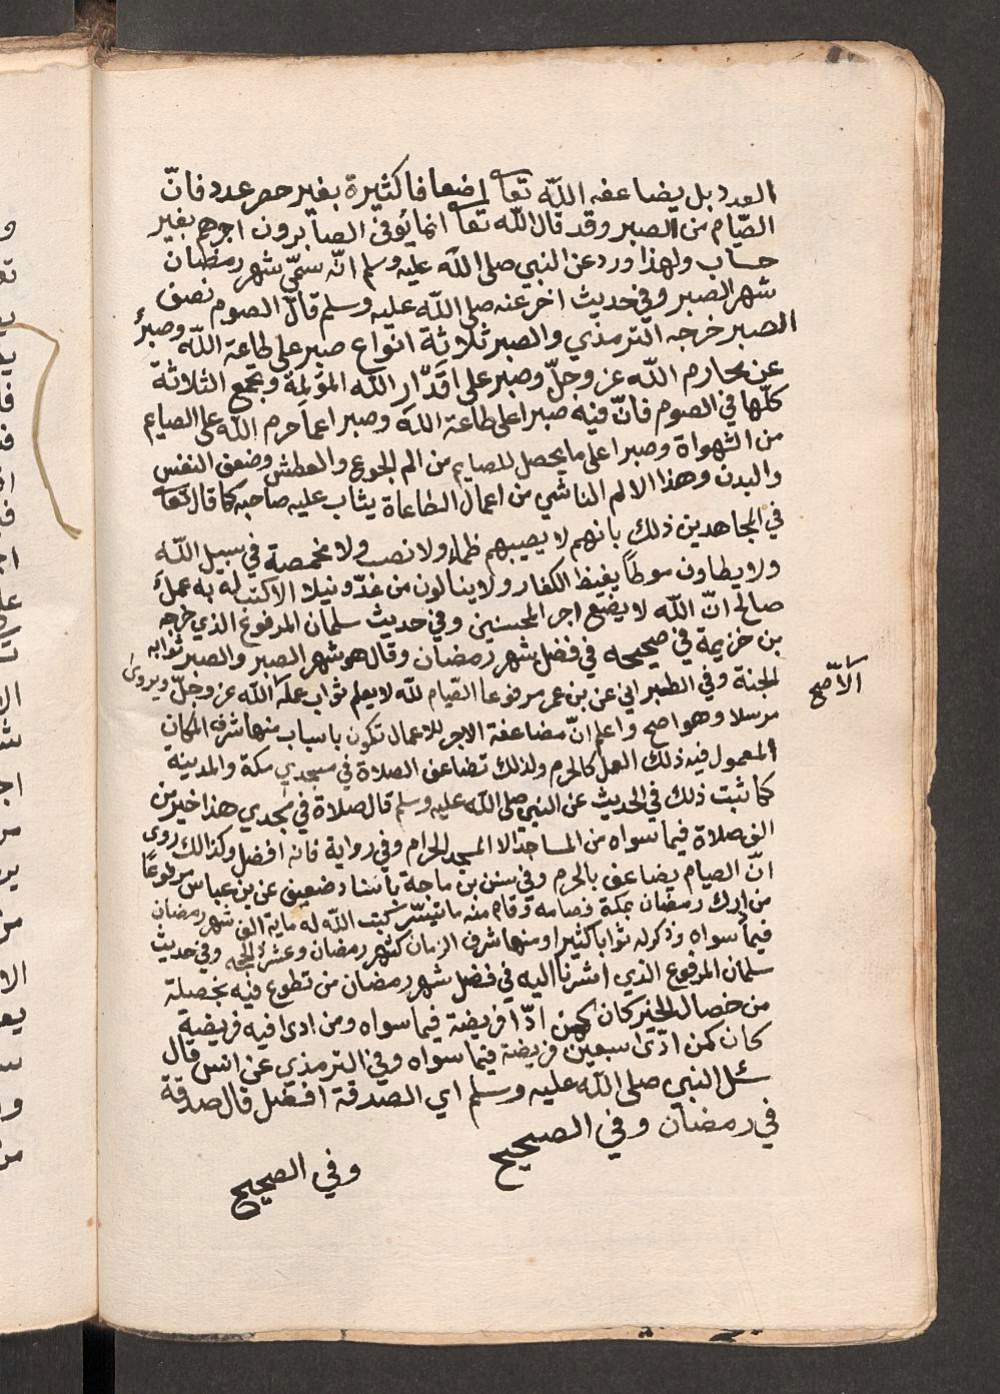 العدد بل يضاعفه اللّه تعا اضعافا كثيرة بغير حصر عدد فانّ
الصّيام من الصبر وقد قال اللّه تعا انما يُوفى الصابرون اجرهم بغير
حساب ولهذا ورد عن النبي صلى اللّه عليه وسلم انّه سمّى شهر رمضان
شهر الصبر وفي حديث اخر عنه صلى اللّه عليه وسلم قال الصوم نصف
الصبر خرجه الترمذي والصبر ثلاثة انواع صبر على طاعة اللّه وصبرٌ
عن محارم اللّه عز وجلّ وصبر على اقدار اللّه المؤلمة وتجمع الثلاثة
كلّها في الصوم فانّ فيه صبرا على طاعة اللّه وصبرا عما حرم اللّه على الصايم
من الشهواة وصبرا على ما يحصل للصايم من الم الجوع والعطش وضعف النفس
والبدن وهذا الالم الناشي من اعمال الطاعاة يثاب عليه صاحبه كما قال تعا
في المجاهدين ذلك بانهم لا يصيبهم ظماء ولا نصب ولا مخمصة في سبيل اللّه
ولا يطاون موطاً يغيظ الكفار ولا ينالون من عدّو نيلا الا كتب له به عملٌ
صالح انّ اللّه لا يضيع اجر المحسنين وفي حديث سلمان المرفوع الذي خرجه
بن خزيمه في صحيحه في فضل شهر رمضان وقال هو شهر الصبر والصبر ثوابه
الجنة وفي الطبراني عن بن عمر مرفوعا الصّيام للّه لا يعلم ثواب عمله الا اللّه عز وجلّ ويروى
مرسلا وهو اصح واعلم انّ مضاعفة الاجر للاعمال تكون باسباب منها شرف المكان
المعمول فيه ذلك العمل كالحرم ولذلك تضاعف الصلاة في مسجدي مكة والمدينة
كما ثبت ذلك في الحديث عن النبي صلى اللّه عليه وسلم قال صلاة في مسجدي هذا خير من
الف صلاة فيما سواه من المساجد الا المسجد الحرام وفي رواية فانه افضل وكذالك روى
انّ الصيام يضاعف بالحرم وفي سنن بن ماجة باسناد ضعيف عن بن عباس مرفوعًا
من ادرك رمضان بمكة فصامه وقام منه ما تيسّر كتب اللّه له ماية الف شهر رمضان
فيما سواه وذكر له ثوابا كثيرا ومنها شرف الزمان كشهر رمضان وعشر ذي الحجه وفي حديث
سلمان المرفوع الذي اشرنا اليه في فضل شهر رمضان من تطوع فيه بخصلة
من خصال الخير كان كمن ادّا فريضة فيما سواه ومن ادى فيه فريضة
كان كمن ادّى سبعين فريضة فيما سواه وفي الترمذي عن انس قال
سئل النبي صلى اللّه عليه وسلم اي الصدقة افضل قال صدقة
في رمضان وفي الصحيح
وفي الصحيح
الاصح